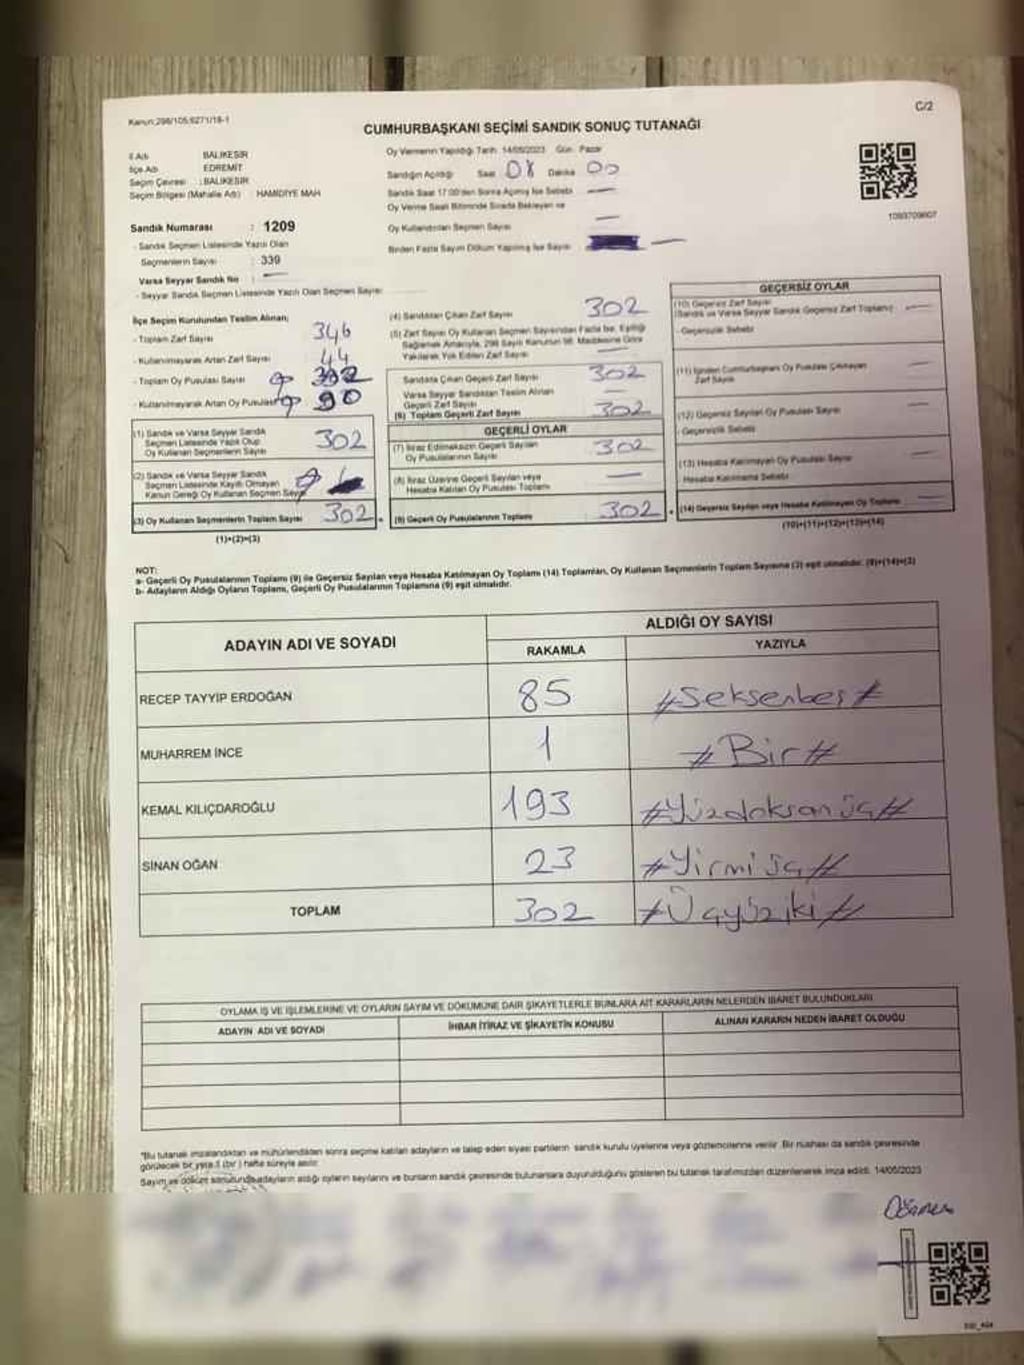 Kanun:298/105,6271/18-1
C/2
CUMHURBAŞKANI SEÇİMİ SANDIK SONUÇ TUTANAĞI
İl Adı BALIKESİR
İlçe Adı EDREMİT
Seçim Çevresi : BALIKESİR
Seçim Bölgesi (Mahalle Adı) : HAMİDİYE MAH
Sandık Numarası : 1209
- Sandık Seçmen Listesinde Yazılı Olan
Seçmenlerin Sayısı : 339
Varsa Seyyar Sandık No :
- Seyyar Sandık Seçmen Listesinde Yazılı Olan Seçmen Sayısı
Oy Vermenin Yapıldığı Tarih 14/05/2023 Gün: Pazar
Sandığın Açıldığı Saat 08 Dakika 00
Sandık Saat 17:00'den Sonra Açılmış İse Sebebi
Oy Verme Saati Bitiminde Sırada Bekleyen ve
Oy Kullandırılan Seçmen Sayısı
Birden Fazla Sayım Döküm Yapılmış İse Sayısı
1093709607
İlçe Seçim Kurulundan Teslim Alınan;
- Toplam Zarf Sayısı 346
- Kullanılmayarak Artan Zarf Sayısı 44
- Toplam Oy Pusulası Sayısı
- Kullanılmayarak Artan Oy Pusulası 90
(1) Sandık ve Varsa Seyyar Sandık
Seçmen Listesinde Yazılı Olup
Oy Kullanan Seçmenlerin Sayısı 302
(2) Sandık ve Varsa Seyyar Sandık
Seçmen Listesinde Kayıtlı Olmayan
Kanun Gereği Oy Kullanan Seçmen Sayısı
(3) Oy Kullanan Seçmenlerin Toplam Sayısı 302
(1)+(2)=(3)
(4) Sandıktan Çıkan Zarf Sayısı 302
(5) Zarf Sayısı Oy Kullanan Seçmen Sayısından Fazla İse, Eşitliği
Sağlamak Amacıyla, 298 Sayılı Kanunun 98. Maddesine Göre
Yakılarak Yok Edilen Zarf Sayısı
Sandıkta Çıkan Geçerli Zarf Sayısı 302
Varsa Seyyar Sandıktan Teslim Alınan
Geçerli Zarf Sayısı
(6) Toplam Geçerli Zarf Sayısı 302
GEÇERLİ OYLAR
(7) İtiraz Edilmeksizin Geçerli Sayılan
Oy Pusulalarının Sayısı 302
(8) İtiraz Üzerine Geçerli Sayılan veya
Hesaba Katılan Oy Pusulası Toplamı
(9) Geçerli Oy Pusulalarının Toplamı 302
GEÇERSİZ OYLAR
(10) Geçersiz Zarf Sayısı
(Sandık ve Varsa Seyyar Sandık Geçersiz Zarf Toplamı)
- Geçersizlik Sebebi
(11) İçinden Cumhurbaşkanı Oy Pusulası Çıkmayan
Zarf Sayısı
(12) Geçersiz Sayılan Oy Pusulası Sayısı
- Geçersizlik Sebebi
(13) Hesaba Katılmayan Oy Pusulası Sayısı
Hesaba Katılmama Sebebi
(14) Geçersiz Sayılan veya Hesaba Katılmayan Oy Toplamı
(10)+(11)+(12)+(13)=(14)
NOT:
a- Geçerli Oy Pusulalarının Toplamı (9) ile Geçersiz Sayılan veya Hesaba Katılmayan Oy Toplamı (14) Toplamları, Oy Kullanan Seçmenlerin Toplam Sayısına (3) eşit olmalıdır. (9)+(14)=(3)
b- Adayların Aldığı Oyların Toplamı, Geçerli Oy Pusulalarının Toplamına (9) eşit olmalıdır.
ADAYIN ADI VE SOYADI
ALDIĞI OY SAYISI
RAKAMLA YAZIYLA
RECEP TAYYİP ERDOĞAN 85 #Seksenbeş#
MUHARREM İNCE 1 #Bir#
KEMAL KILIÇDAROĞLU 193 #Yüzdoksanüç#
SİNAN OĞAN 23 #Yirmiüç#
TOPLAM 302 #Üçyüziki#
OYLAMA İŞ VE İŞLEMLERİNE VE OYLARIN SAYIM VE DÖKÜMÜNE DAİR ŞİKAYETLERLE BUNLARA AİT KARARLARIN NELERDEN İBARET BULUNDUKLARI
ADAYIN ADI VE SOYADI İHBAR İTİRAZ VE ŞİKAYETİN KONUSU ALINAN KARARIN NEDEN İBARET OLDUĞU
*Bu tutanak imzalandıktan ve mühürlendikten sonra seçime katılan adayların ve talep eden siyasi partilerin sandık kurulu üyelerine veya gözlemcilerine verilir. Bir nüshası da sandık çevresinde
görülecek bir yere 1 (bir) hafta süreyle asılır.
Sayım ve döküm sonucunda adayların aldığı oyların sayılarını ve bunların sandık çevresinde bulunanlara duyurulduğunu gösteren bu tutanak tarafımızdan düzenlenerek imza edildi. 14/05/2023